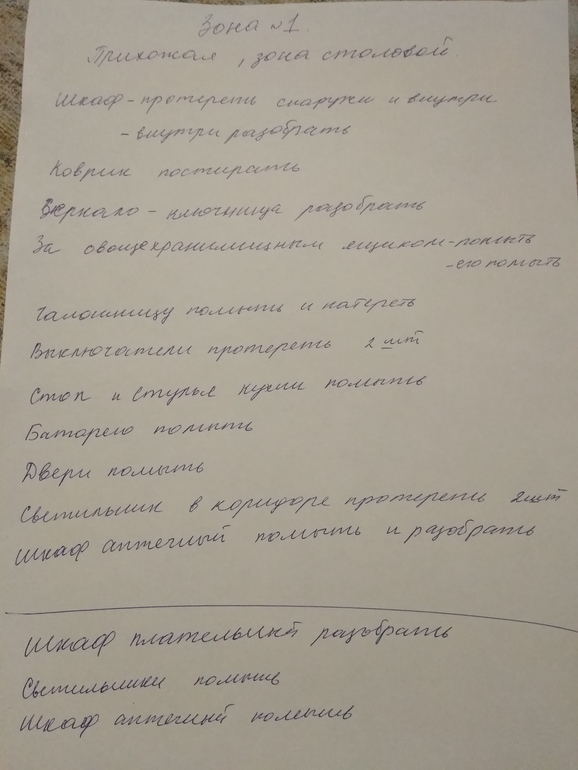 Зона №1.
Прихожая, зона столовой.
Шкаф - протереть снаружи и внутри
- внутри разобрать
Коврик постирать
Зеркало - ключница разобрать
За овощехранилищным ящиком - помыть
- его помыть
Галошницу помыть и натереть
Выключатели протереть 2 шт
Стол и стулья кухни помыть
Батарею помыть
Двери помыть
Светильник в коридоре протереть 2шт
Шкаф аптечный помыть и разобрать
Шкаф плательный разобрать
Светильники помыть
Шкаф аптечный помыть